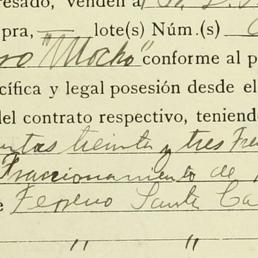 resado, venden a
pra, lote(s) Núm.(s)
"Mocho" conforme al p
cífica y legal posesión desde el
del contrato respectivo, teniend
treinta y tres
Fraccionamiento de
Terreno Santa Ca
" "